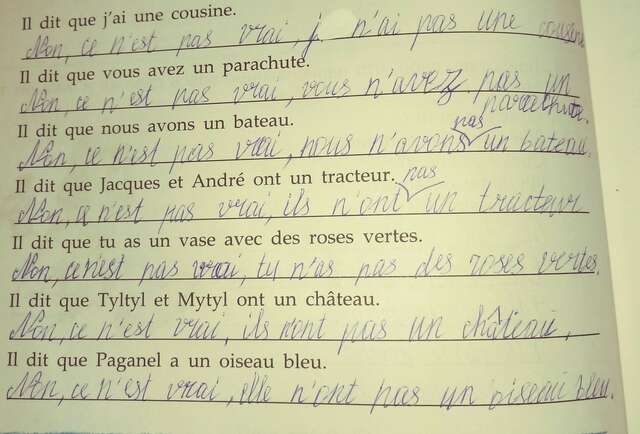 Il dit que j'ai une cousine.
Non, ce n'est pas vrai, j. n'ai pas une cousine
Il dit que vous avez un parachute.
Non, ce n'est pas vrai, vous n'avez pas un
parachute.
Il dit que nous avons un bateau.
pas
Non, ce n'est pas vrai, nous n'avons un bateau.
Il dit que Jacques et André ont un tracteur.
pas
Non, ce n'est pas vrai, ils n'ont un tracteur
Il dit que tu as un vase avec des roses vertes.
Non, ce n'est pas vrai, tu n'as pas des roses vertes.
Il dit que Tyltyl et Mytyl ont un château.
Non, ce n'est vrai, ils n'ont pas un château,
Il dit que Paganel a un oiseau bleu.
Non, ce n'est vrai, elle n'ont pas un oiseau bleu.